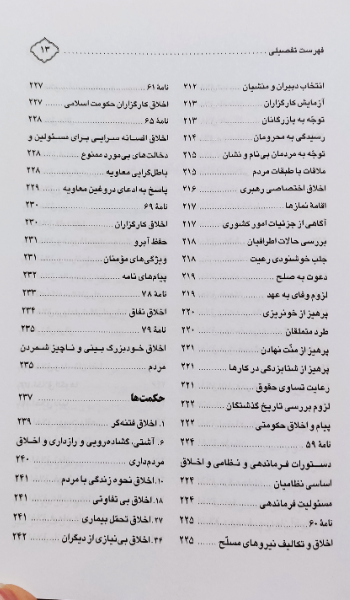 فهرست تفصیلی ........ ۱۳
انتخاب دبیران و منشیان ........ ۲۱۲
آزمایش کارگزاران ........ ۲۱۳
توجّه به بازرگانان ........ ۲۱۳
رسیدگی به محرومان ........ ۲۱۴
توجّه به مردمان بی‌نام و نشان ........ ۲۱۵
ملاقات با طبقات مردم ........ ۲۱۵
اخلاق اختصاصی رهبری ........ ۲۱۶
اقامهٔ نمازها ........ ۲۱۷
آگاهی از جزئیات امور کشوری ........ ۲۱۷
بررسی حالات اطرافیان ........ ۲۱۸
جلب خوشنودی رعیت ........ ۲۱۸
دعوت به صلح ........ ۲۱۹
لزوم وفای به عهد ........ ۲۱۹
پرهیز از خونریزی ........ ۲۲۰
طرد متملقان ........ ۲۲۰
پرهیز از منّت نهادن ........ ۲۲۱
پرهیز از شتابزدگی در کارها ........ ۲۲۱
رعایت تساوی حقوق ........ ۲۲۱
لزوم بررسی تاریخ گذشتگان ........ ۲۲۲
پیام و اخلاق حکومتی ........ ۲۲۲
نامهٔ ۵۹ ........ ۲۲۴
دستورات فرماندهی و نظامی و اخلاق
اساسی نظامیان ........ ۲۲۴
مسئولیت فرماندهی ........ ۲۲۴
نامهٔ ۶۰ ........ ۲۲۵
اخلاق و تکالیف نیروهای مسلّح ........ ۲۲۵
نامهٔ ۶۱ ........ ۲۲۷
اخلاق کارگزاران حکومت اسلامی ........ ۲۲۷
نامهٔ ۶۵ ........ ۲۲۸
اخلاق افسانه سرایی برای مسئولین و
دخالت‌های بی‌مورد ممنوع ........ ۲۲۸
باطل‌گرایی معاویه ........ ۲۲۸
پاسخ به ادعای دروغین معاویه ........ ۲۲۹
نامهٔ ۶۹ ........ ۲۳۰
اخلاق کارگزاران ........ ۲۳۰
حفظ آبرو ........ ۲۳۱
ویژگی‌های مؤمنان ........ ۲۳۱
پیام‌های نامه ........ ۲۳۲
نامهٔ ۷۸ ........ ۲۳۳
اخلاق نفاق ........ ۲۳۴
نامهٔ ۷۹ ........ ۲۳۵
اخلاق خودبزرگ بینی و ناچیز شمردن
مردم ........ ۲۳۵
حکمت‌ها ........ ۲۳۷
۱. اخلاق فتنه‌گر ........ ۲۳۹
۶. آشتی، گشاده‌رویی و رازداری و اخلاق
مردم‌داری ........ ۲۴۰
۱۰. اخلاق نحوه زندگی با مردم ........ ۲۴۱
۱۸. اخلاق بی تفاوتی ........ ۲۴۱
۲۷. اخلاق تحمّل بیماری ........ ۲۴۱
۳۴. اخلاق بی‌نیازی از دیگران ........ ۲۴۲